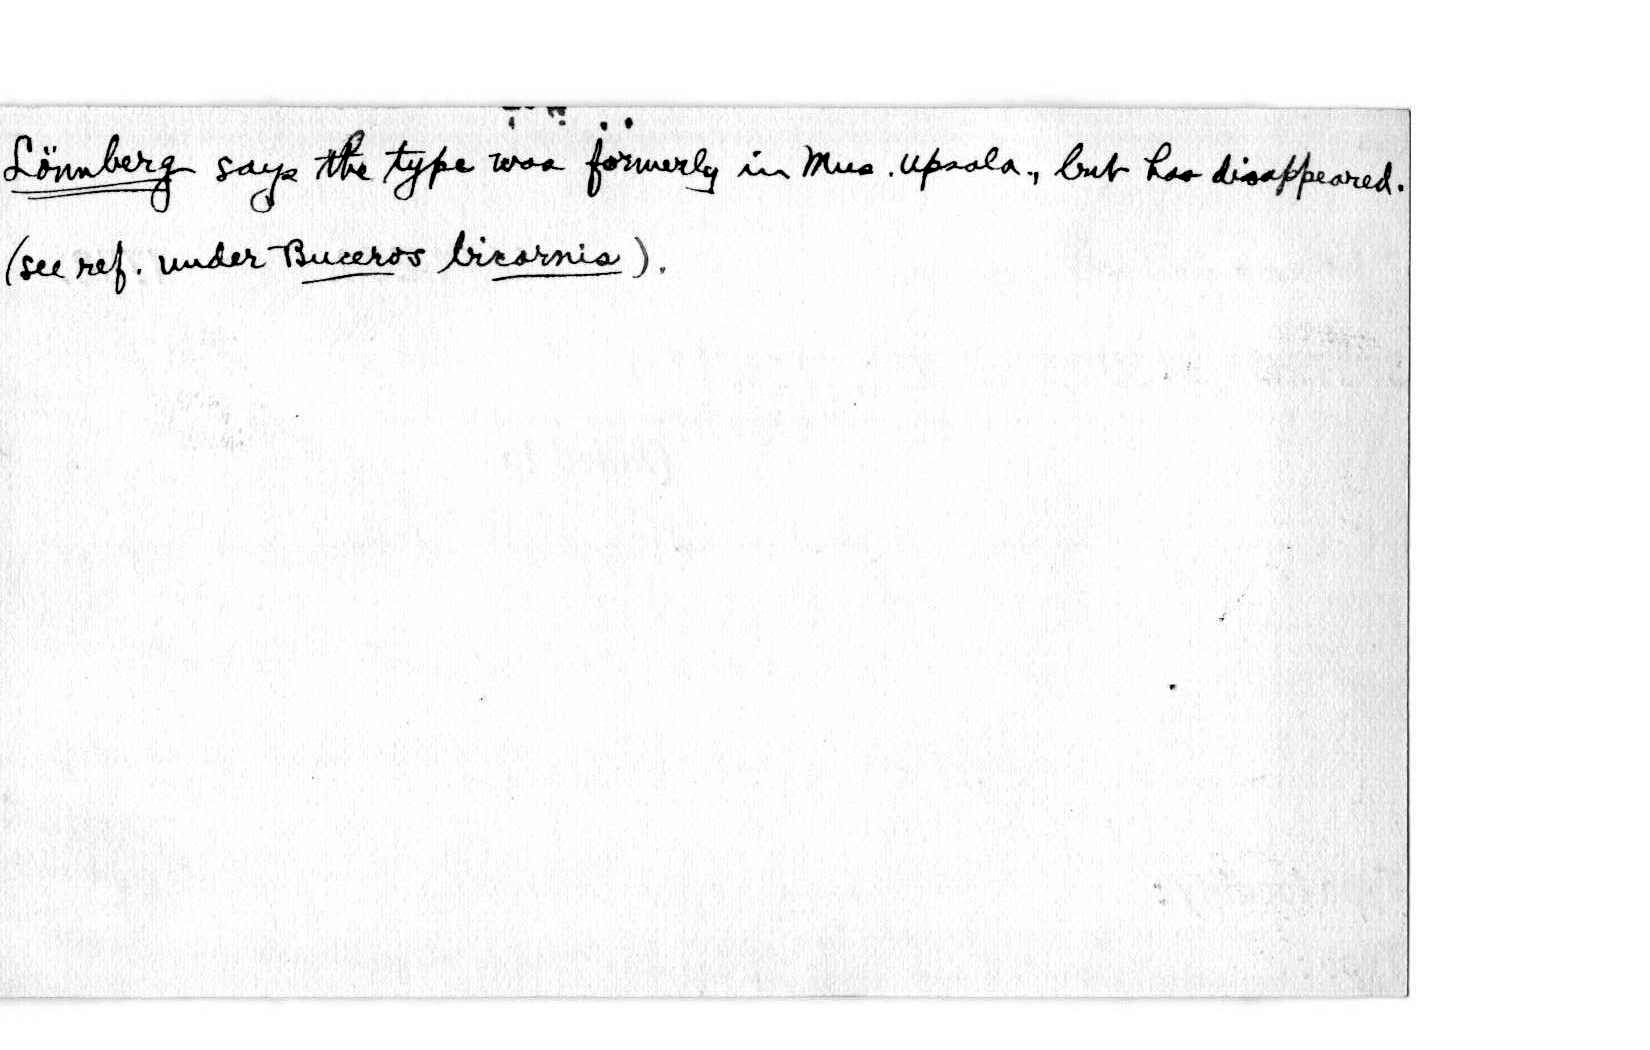 Lönnberg says the type was formerly in Mus. Upsala., but has disappeared.
(see ref. under Buceros bicornis).